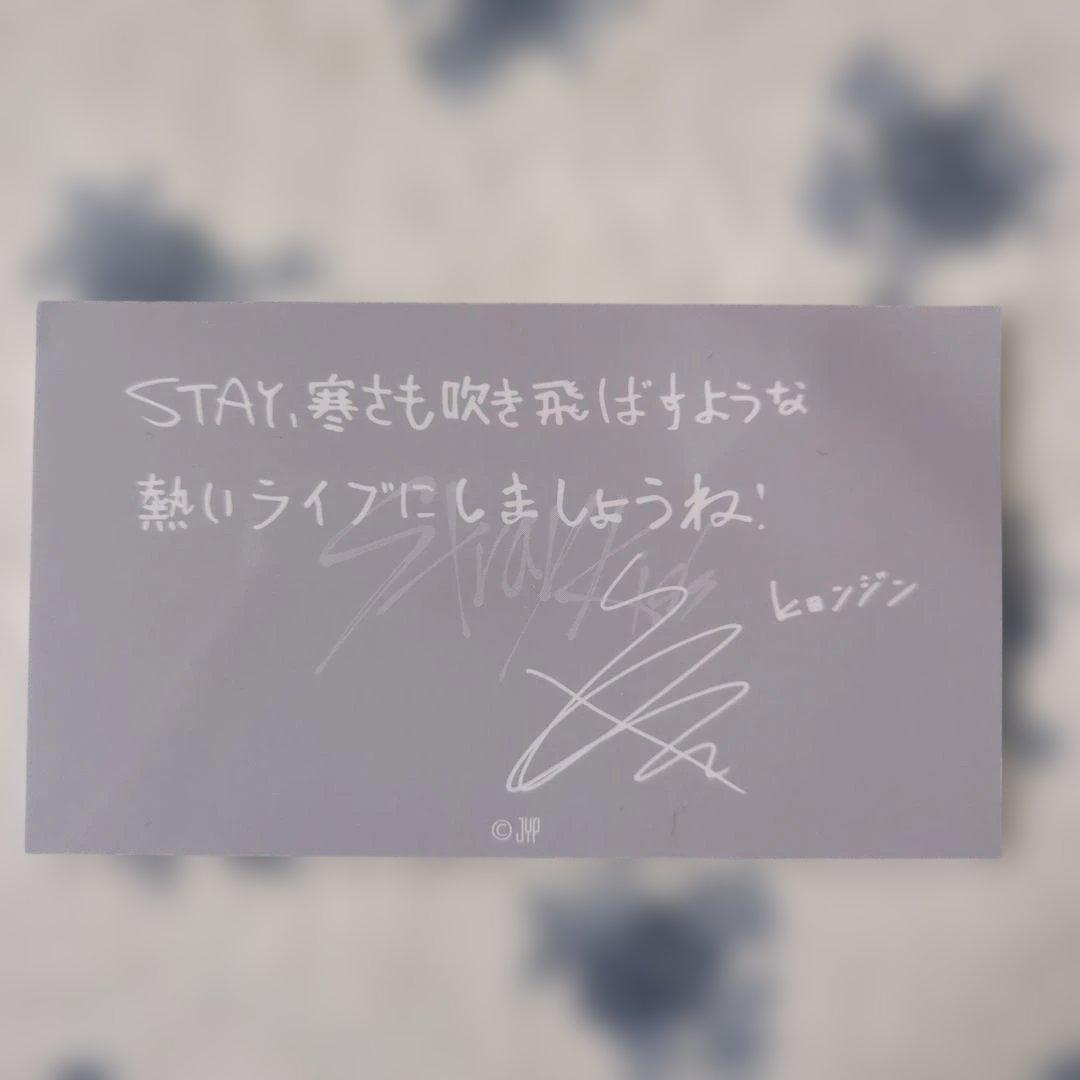 STAY, 寒さも吹き飛ばすような
熱いライブにしましょうね!
Stray Kids
ヒョンジン
© JYP